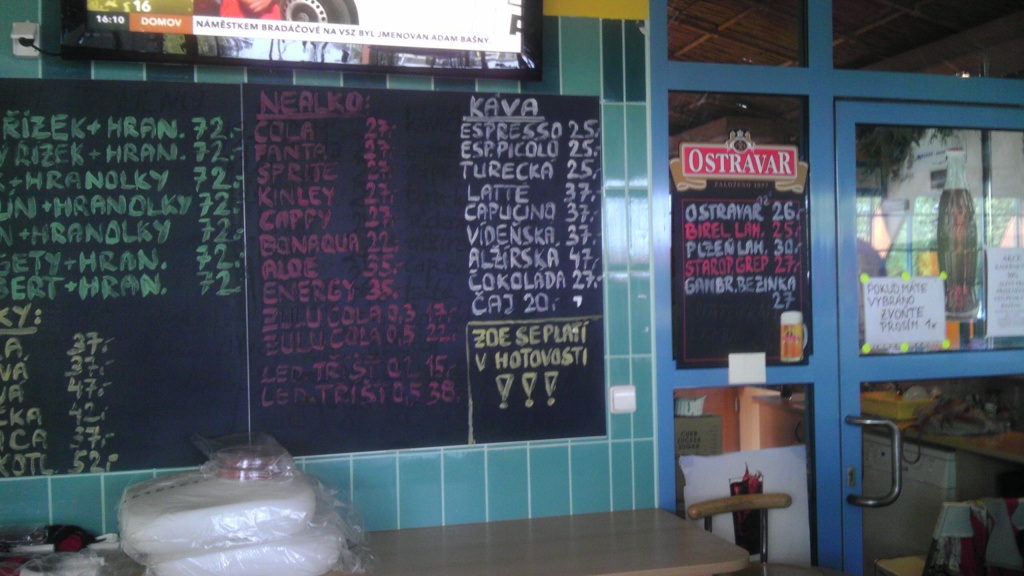 16
16:10 DOMOV NÁMĚSTKEM BRADÁČOVÉ NA VSZ BYL JMENOVÁN ADAM BAŠNÝ.
ŘÍZEK+HRAN. 72.-
ŘÍZEK+HRAN. 72.-
+HRANOLKY 72.-
+HRANOLKY 72.-
+HRANOLKY 72.-
GETY+HRAN. 72.-
BERT+HRAN. 72.-
KY:
37.-
VÁ 37.-
47.-
42.-
37.-
KOTL 52.-
NEALKO:
COLA 27.-
FANTA 27.-
SPRITE 27.-
KINLEY 27.-
CAPPY 27.-
BONAQUA 22.-
ALOE 35.-
ENERGY 35.-
ZULU COLA 0,3 17.-
ZULU COLA 0,5 22.-
LED. TŘÍŠŤ 0,2 15.-
LED. TŘÍŠŤ 0,5 38.-
KÁVA
ESPRESSO 25.-
ESP.PICOLO 25.-
TURECKÁ 25.-
LATTE 37.-
CAPUCINO 37.-
VÍDEŇSKÁ 37.-
ALŽÍRSKÁ 47.-
ČOKOLÁDA 27.-
ČAJ 20.-
ZDE SE PLATÍ
V HOTOVOSTI
!!!
OSTRAVAR
ZALOŽENO 1897
OSTRAVAR 26.-
BIREL LAH. 25.-
PLZEŇ LAH. 30.-
STAROP. GREP 27.-
GAMBR. BEZINKA
27
POKUD MÁTE
VYBRÁNO
ZVOŇTE
PROSÍM 1x